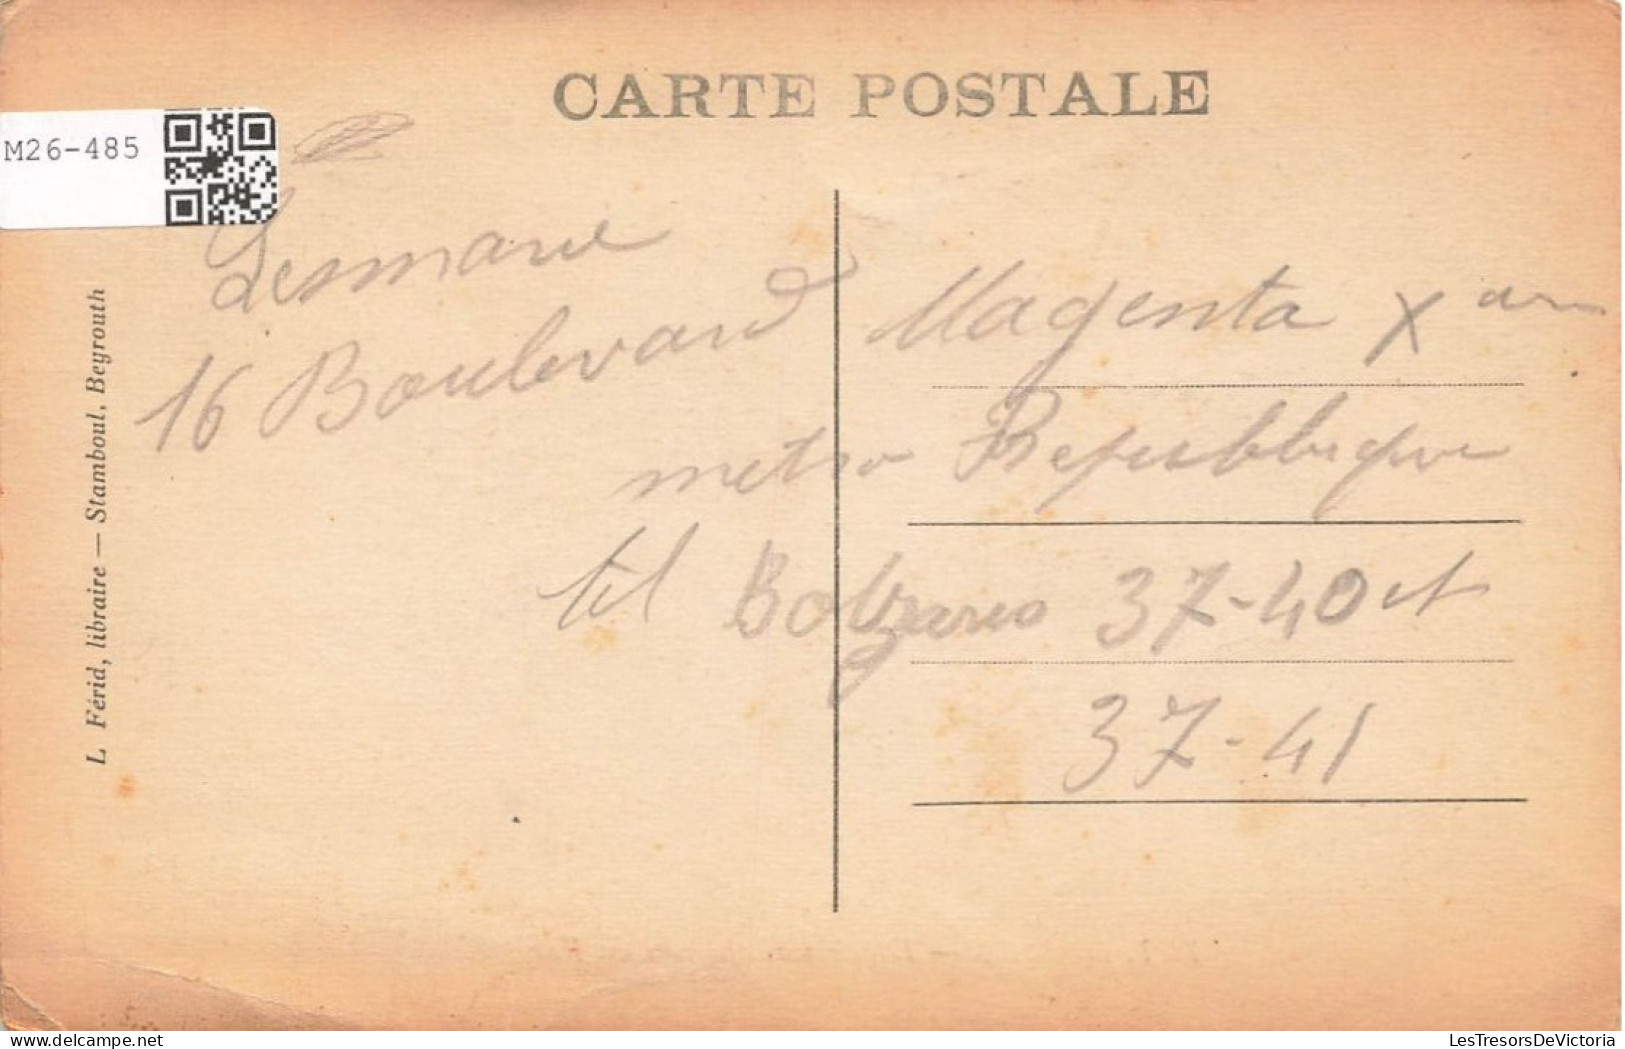 CARTE POSTALE
M26-485
16 Boulevard Magenta X
metro Republique
tel Botzaris 37-40 et
37-41
L. Férid, libraire — Stamboul, Beyrouth
delcampe.net
LesTresorsDeVictoria